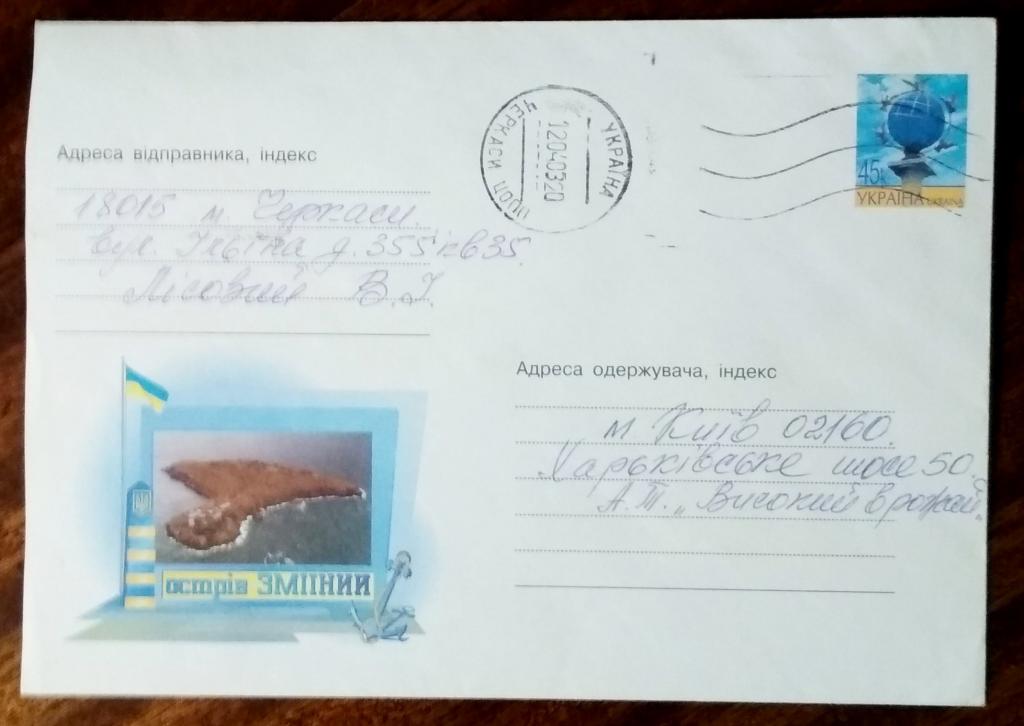 Адреса відправника, індекс
18015 м. Черкаси.
вул. Ільїна д. 355 кв 35.
Лісовий В. І.
УКРАЇНА
ЧЕРКАСИ
12040320
45к
УКРАЇНА UKRAINA
острів ЗМІЇНИЙ
Адреса одержувача, індекс
м. Київ 02160.
Харьківське шосе 50.
А.Т. „Високий врожай"